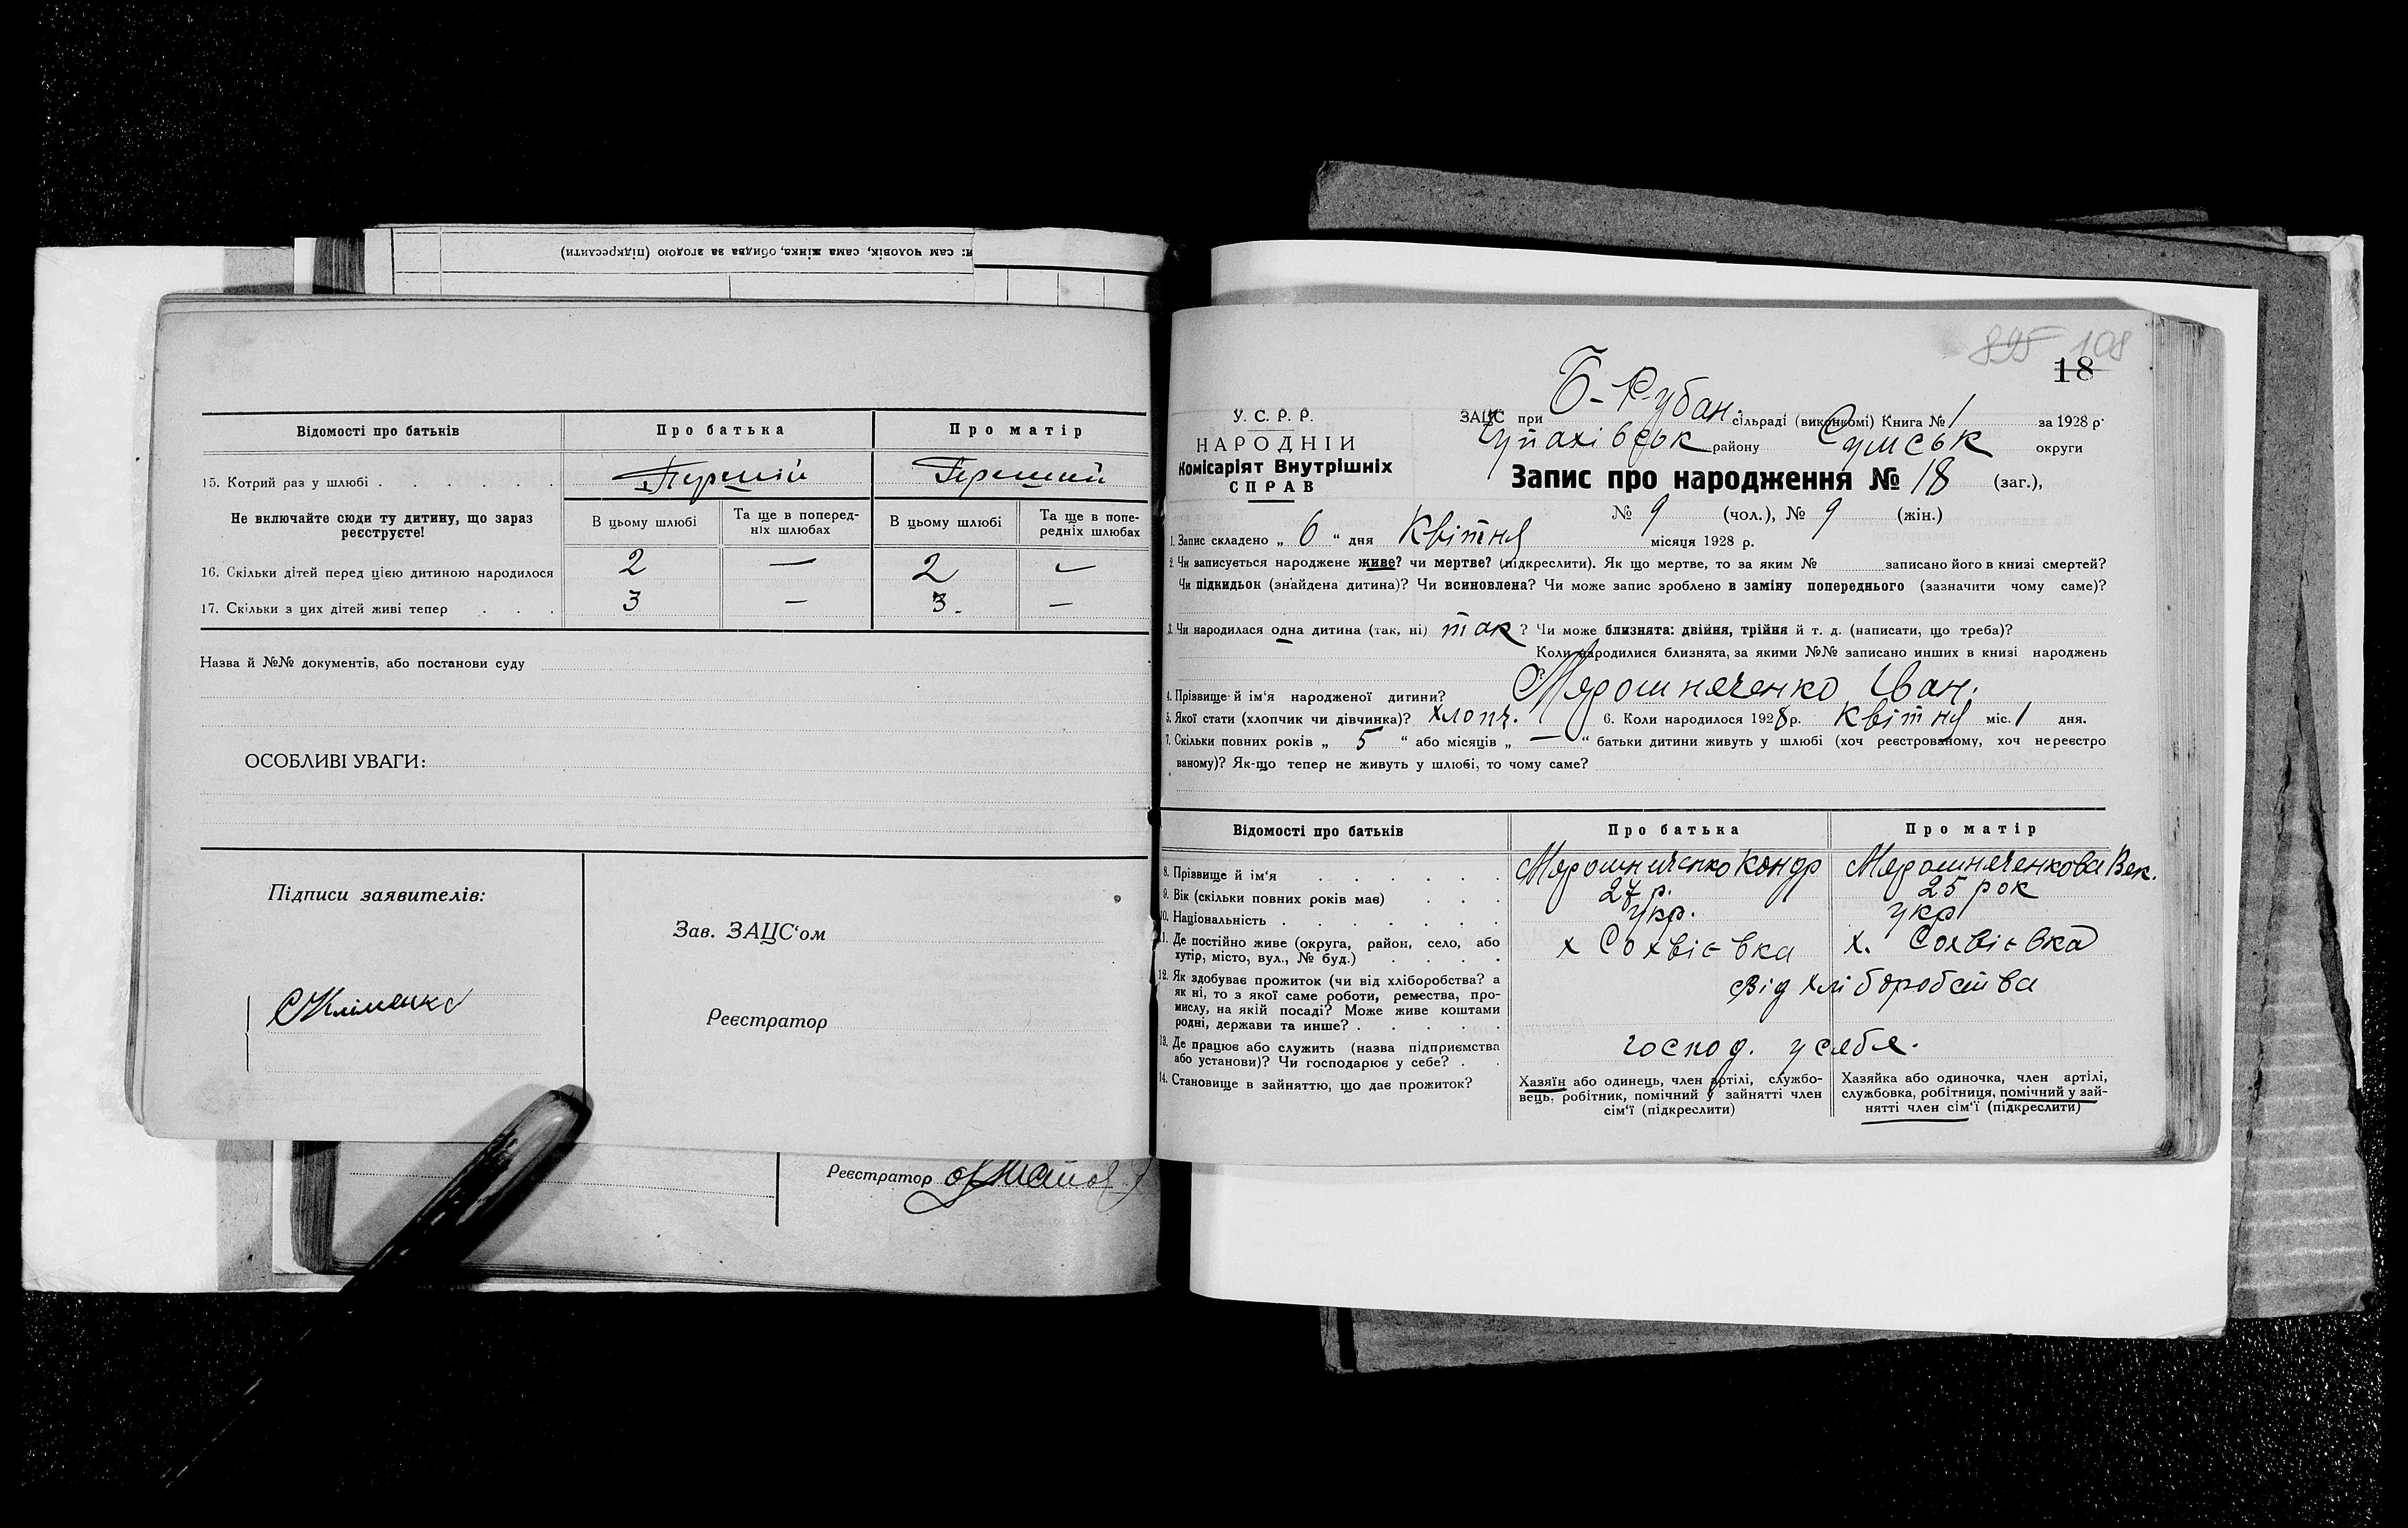 я: сам чоловік, сама жінка, обидва за згодою (підкреслити)
Відомості про батьків
Про батька
Про матір
15. Котрий раз у шлюбі . . . . . .
Перший
Перший
Не включайте сюди ту дитину, що зараз реєструєте!
В цьому шлюбі
Та ще в поперед-
ніх шлюбах
В цьому шлюбі
Та ще в попе-
редніх шлюбах
16. Скільки дітей перед цією дитиною народилося
2 — 2 —
17. Скільки з цих дітей живі тепер . . .
3 — 3. —
Назва й №№ документів, або постанови суду
ОСОБЛИВІ УВАГИ:
Підписи заявителів:
Зав. ЗАЦС‘ом
Реєстратор
Реєстратор
895 108
18
У. С. Р. Р.
НАРОДНІЙ
Комісаріят Внутрішніх
СПРАВ
ЗАЦС при Б-Рубан. сільраді (виконкомі) Книга № 1 за 1928 р.
району Сумськ округи
Запис про народження № 18 (заг.),
№ 9 (чол.), № 9 (жін.)
1. Запис складено „ 6 “ дня Квітня місяця 1928 р.
2. Чи записується народжене живе? чи мертве? (підкреслити). Як що мертве, то за яким № записано його в книзі смертей?
Чи підкидьок (знайдена дитина)? Чи всиновлена? Чи може запис зроблено в заміну попереднього (зазначити чому саме)?
3. Чи народилася одна дитина (так, ні) так ? Чи може близнята: двійня, трійня й т. д. (написати, що треба)?
Коли народилися близнята, за якими №№ записано инших в книзі народжень
4. Прізвище й ім‘я народженої дитини? Мярошняченко Іван.
5. Якої стати (хлопчик чи дівчинка)? хлопч. 6. Коли народилося 1928 р. Квітня міс. 1 дня.
7. Скільки повних років „ 5 “ або місяців „ — “ батьки дитини живуть у шлюбі (хоч реєстрованому, хоч нереєстро
ваному)? Як-що тепер не живуть у шлюбі, то чому саме?
Відомості про батьків
Про батька
Про матір
8. Прізвище й ім‘я . . . . . .
Мярошниченко Кондр
Мярошняченкова Век.
9. Вік (скільки повних років має) . . .
27 р.
25 рок
10. Національність . . . . . . .
укр.
укр
11. Де постійно живе (округа, район, село, або
хутір, місто, вул., № буд.) . . . .
х Сохвієвка
х. Сохвієвка
12. Як здобуває прожиток (чи від хліборобства? а
як ні, то з якої саме роботи, ремества, про-
мислу, на якій посаді? Може живе коштами
родні, держави та инше? . . . . .
Від хліборобства
13. Де працює або служить (назва підприємства
або установи)? Чи господарює у себе? . .
господ. усебе.
14. Становище в зайняттю, що дає прожиток?
Хазяїн або одинець, член артілі, службо-
вець, робітник, помічний у зайнятті член
сім‘ї (підкреслити)
Хазяйка або одиночка, член артілі,
службовка, робітниця, помічний у зай-
нятті член сім‘ї (підкреслити)